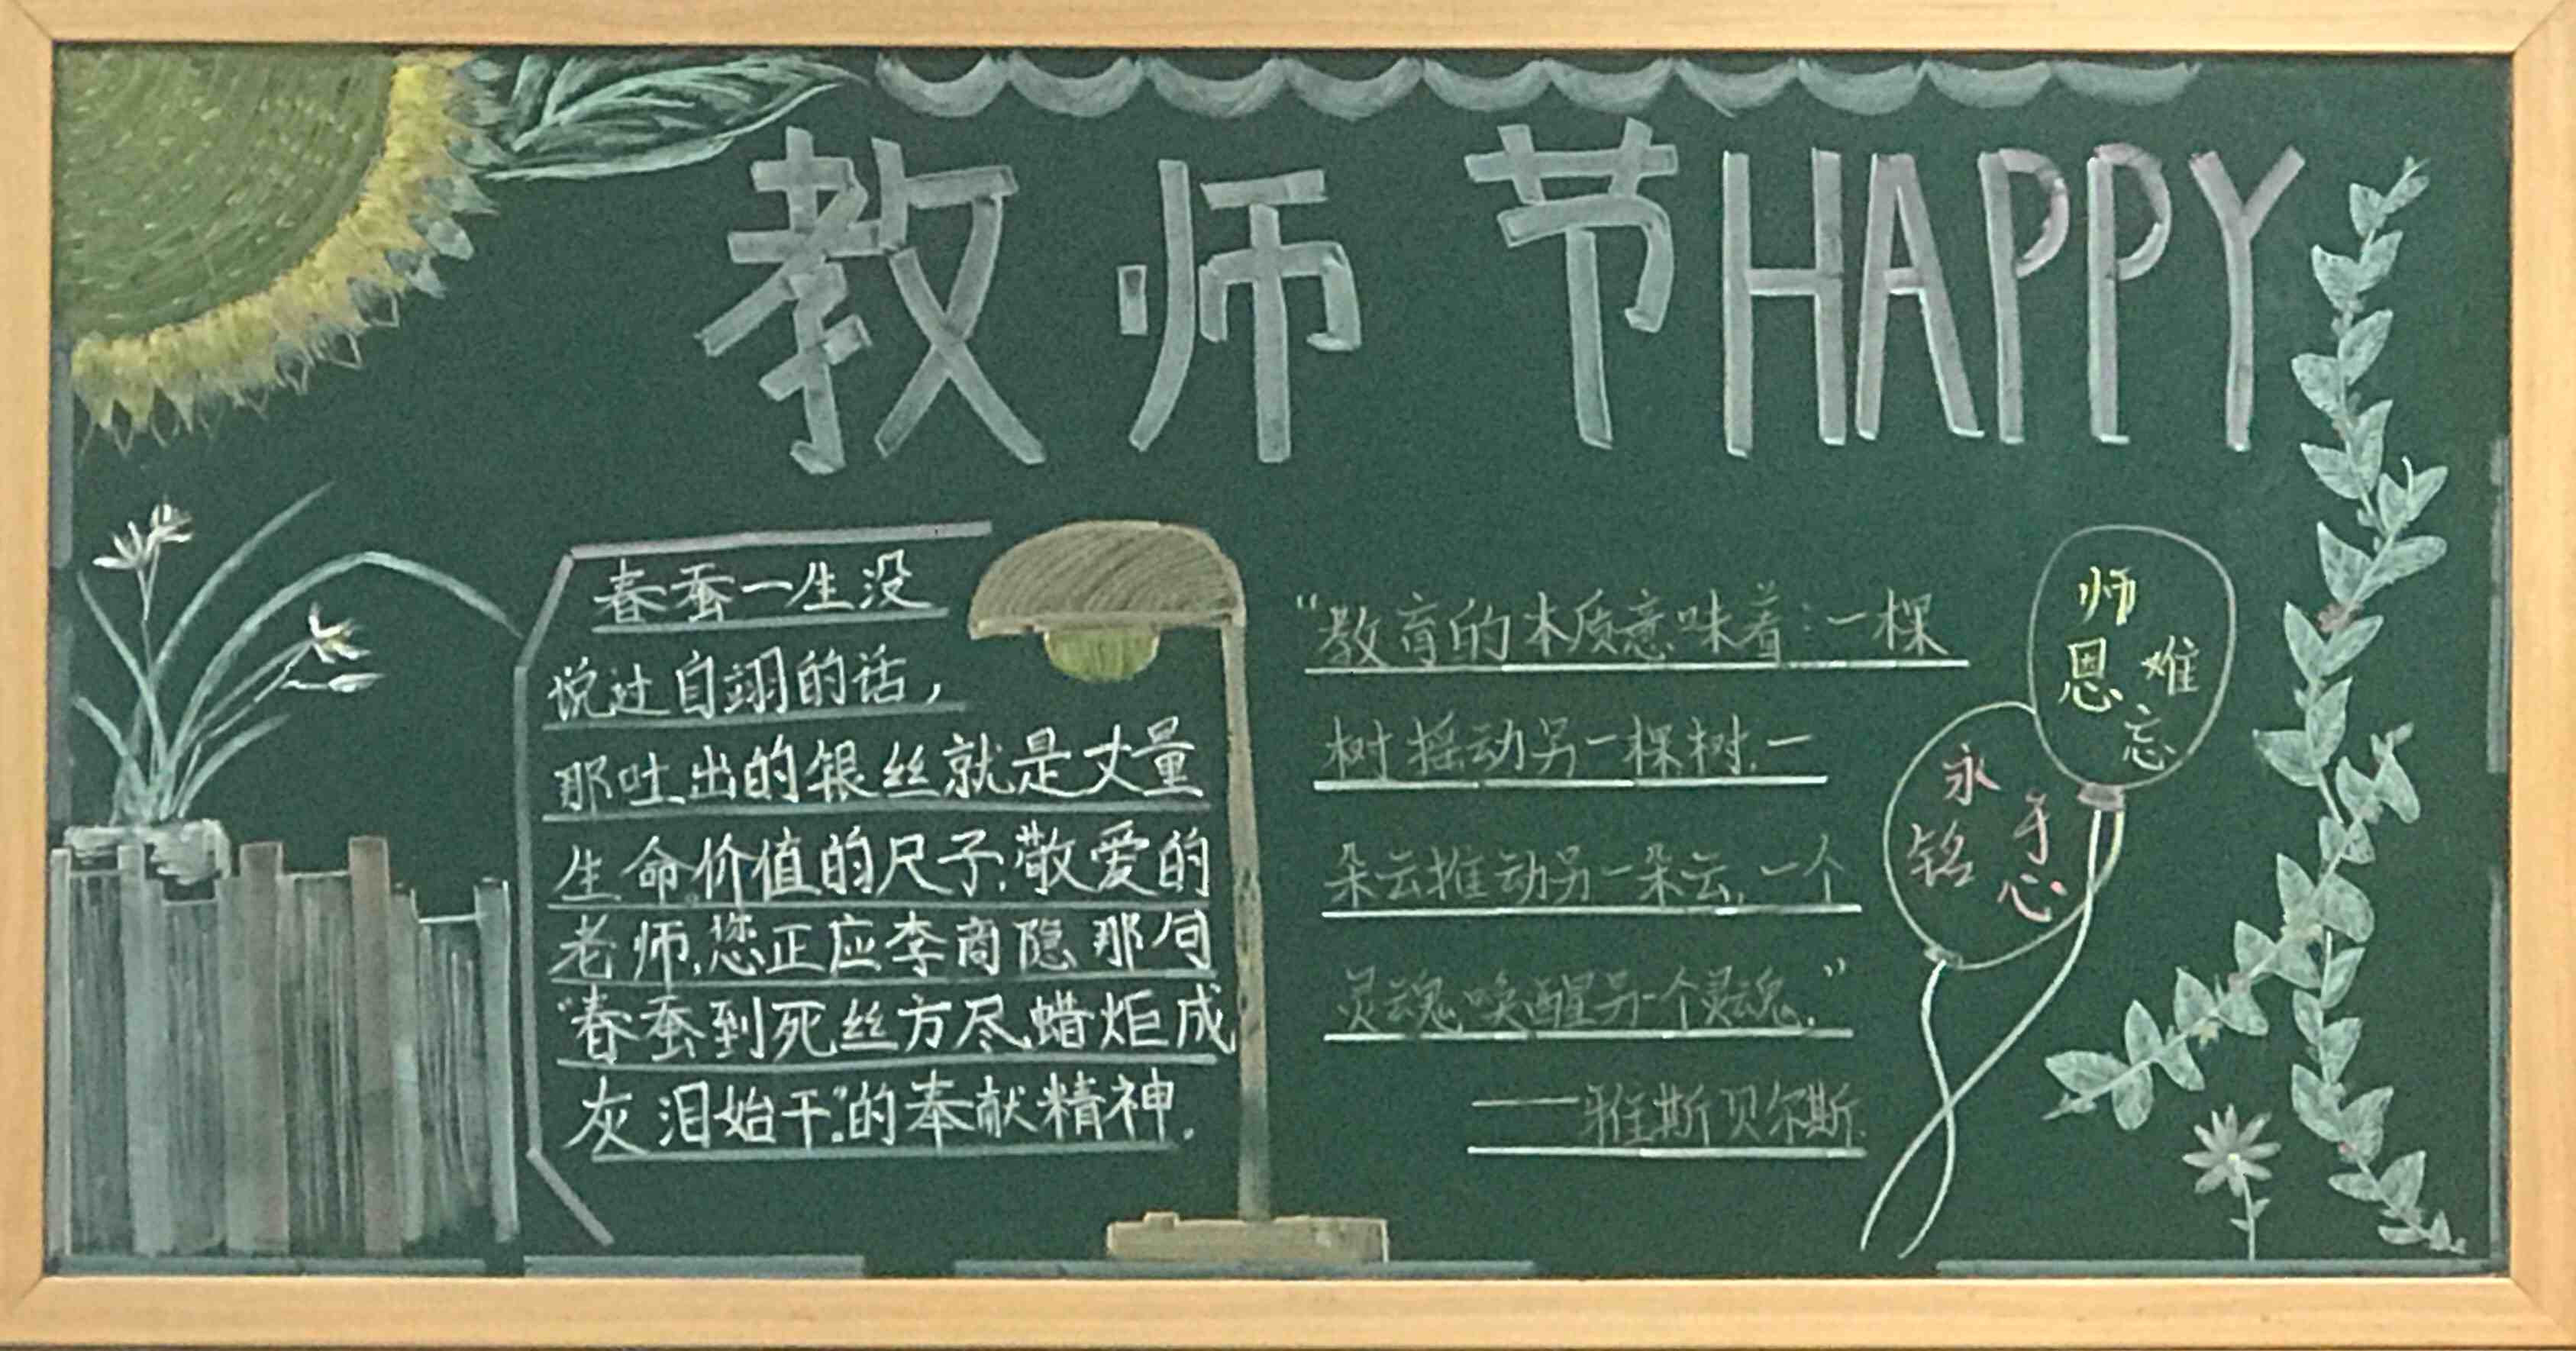 教师节HAPPY
春蚕一生没
说过自翊的话，
那吐出的银丝就是丈量
生命价值的尺子.敬爱的
老师,您正应李商隐那句
“春蚕到死丝方尽,蜡炬成
灰泪始干.”的奉献精神.
“教育的本质意味着：一棵
树摇动另一棵树.一
朵云推动另一朵云,一个
灵魂唤醒另一个灵魂.”
——雅斯贝尔斯.
师恩难忘
永铭于心